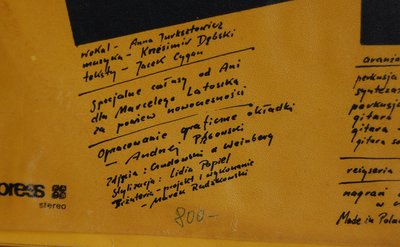 wokal - Anna Jurksztowicz
muzyka - Krzesimir Dębski
teksty - Jacek Cygan
Specjalne całusy od Ani
dla Marcelego Latoska
za powiew nowoczesności
Opracowanie graficzne okładki
- Andrzej Pągowski
Zdjęcia: Gundowski & Weinberg
Stylizacja: Lidia Popiel
Biżuteria - projekt i wykonanie
- Marek Rudzikowski
800-
press
stereo
aranż
perkusja
syntezat
perkusja
gitara
gitara -
gitara so
reżyseria
nagrań
w
Made in Pola